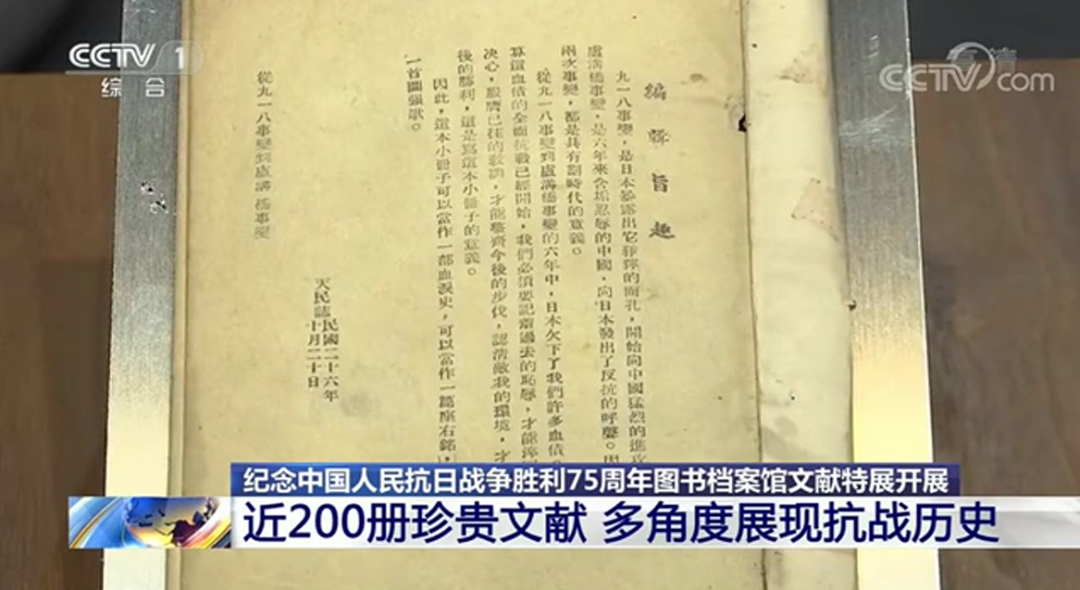 CCTV 1
综合
CCTV.com
編輯旨趣
九一八事變,是日本暴露出它猙獰的面孔,開始向中國猛烈的進攻
盧溝橋事變,是六年來含垢忍辱的中國,向日本發出了反抗的呼聲。
兩次事變,都是具有劃時代的意義。
從九一八事變到盧溝橋事變的六年中,日本欠下了我們許多血債。
算還血債的全面抗戰已經開始,我們必須要記着過去的恥辱,才能
决心,服膺已往的教訓,才能整齊今後的步伐,認清敵我的環境,
後的勝利,這是寫這本小冊子的意義。
因此,這本小冊子可以當作一部血淚史,可以當作一篇座右銘,
一首
民國二十六年
天民誌 十月二十日
從九一八事變到盧溝橋事變
纪念中国人民抗日战争胜利75周年图书档案馆文献特展开展
近200册珍贵文献 多角度展现抗战历史